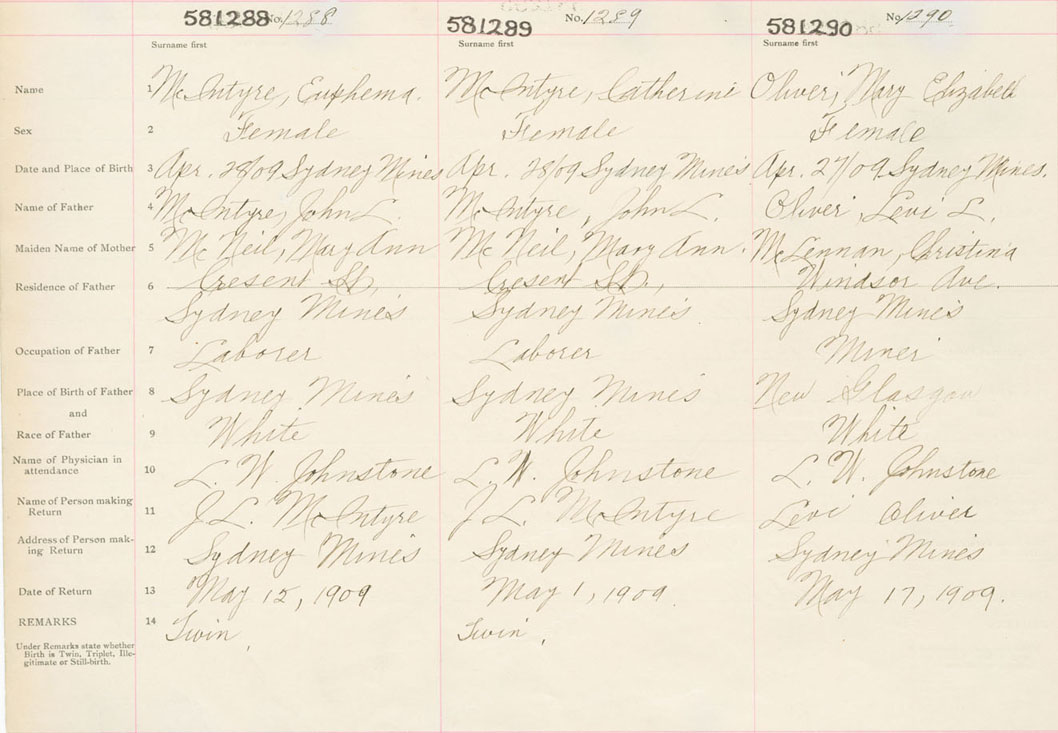 581288 No. 1288 581289 No. 1289 581290 No. 1290
Surname first Surname first Surname first
Name 1 McIntyre, Euphema. McIntyre, Catherine Oliver, Mary Elizabeth
Sex 2 Female Female Female
Date and Place of Birth 3 Apr. 28/09 Sydney Mines Apr. 28/09 Sydney Mines Apr. 27/09 Sydney Mines.
Name of Father 4 McIntyre, John L. McIntyre, John L. Oliver, Levi L.
Maiden Name of Mother 5 McNeil, Mary Ann McNeil, Mary Ann. McLennan, Christina
Residence of Father 6 Cresent St, Cresent St, Windsor Ave.
Sydney Mines Sydney Mines Sydney Mines
Occupation of Father 7 Laborer Laborer Miner
Place of Birth of Father 8 Sydney Mines Sydney Mines New Glasgow
and
Race of Father 9 White White White
Name of Physician in
attendance 10 L. W. Johnstone L. W. Johnstone L. W. Johnstone
Name of Person making
Return 11 J L. McIntyre J L. McIntyre Levi Oliver
Address of Person mak-
ing Return 12 Sydney Mines Sydney Mines Sydney Mines
Date of Return 13 May 15, 1909 May 1, 1909. May 17, 1909.
REMARKS 14 Twin, Twin,
Under Remarks state whether
Birth is Twin, Triplet, Ille-
gitimate or Still-birth.